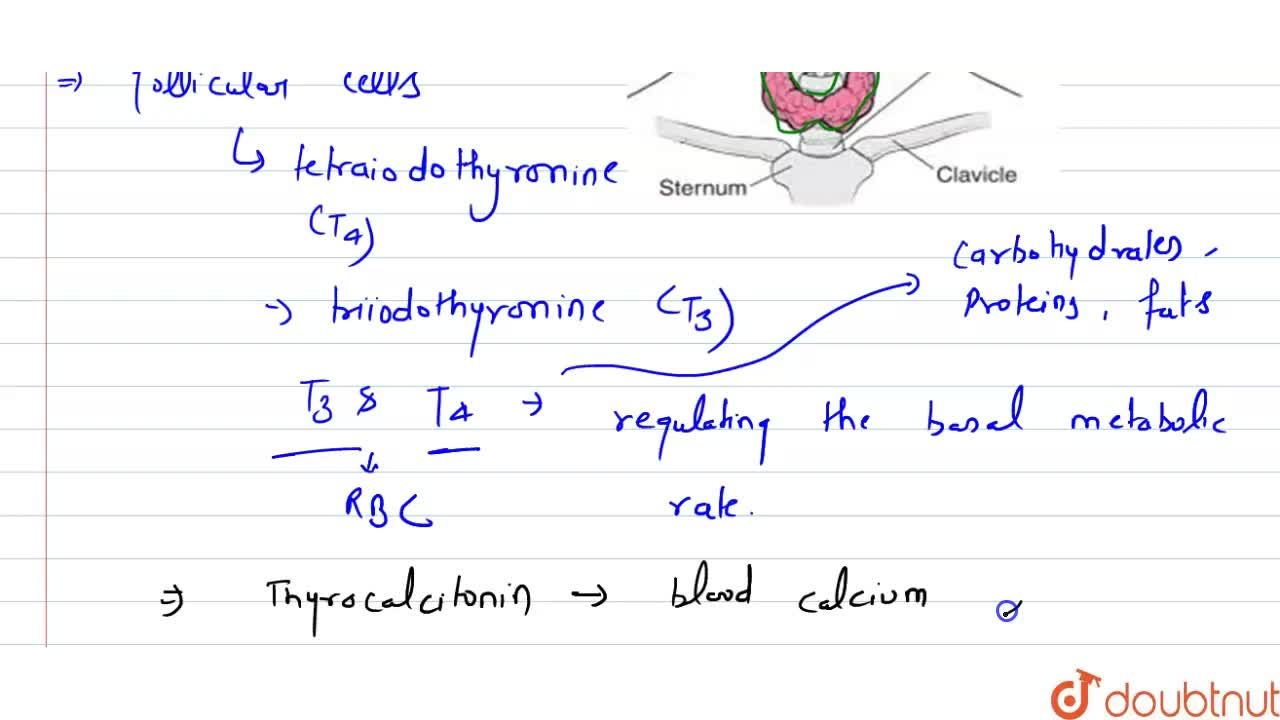 ⇒ follicular cells
↳ tetraiodothyronine
(T4)
Sternum
Clavicle
→ triiodothyronine (T3)
carbohydrates,
Proteins, fats
T3 & T4 → regulating the basal metabolic
RBC rate.
⇒ Thyrocalcitonin → blood calcium
doubtnut